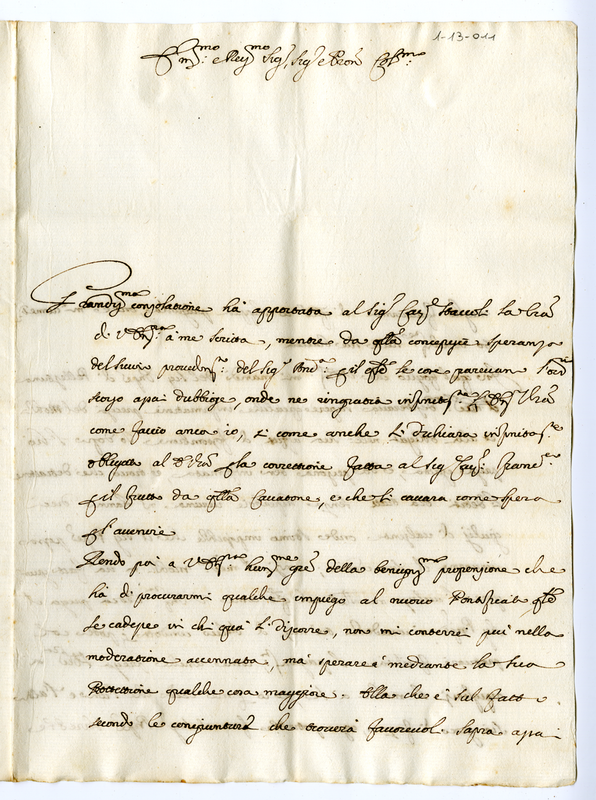 1-13-011
Em.mo e Rev.mo Sig.r, Sig.r e Pron Col.mo
Grandis.ma consolatione hà apportata al Sig.r Cav.r Staccoli la l'ra
di V. Em.za à me scritta, mentre da q'lla concepisce speranza
del Sig.r il q'le le cose parevan
assai dubbiose, onde ne ringratia infinitam.te V. Em.za
come faccio ancor io, si come anche si dichiara infinitam.te
obligata al p la correttione fatta al Sig.r Cav.r Fran.co
p il frutto da q'lla cavatone, e che si cavarà come spera
p l'avvenire
Rendo poi à V. Em.za hum.me gr'e della benignis.ma propensione che
hà di procurarmi qualche impiego al nuovo Pontificato q'do
se cadesse in chi quà si discorre, non mi conterrei più nella
moderatione accennata, mà sperarei mediante la sua
Protettione qualche cosa maggiore. Ella che è sul fatto
secondo le congiunture che troverà favorevol. saprà assai